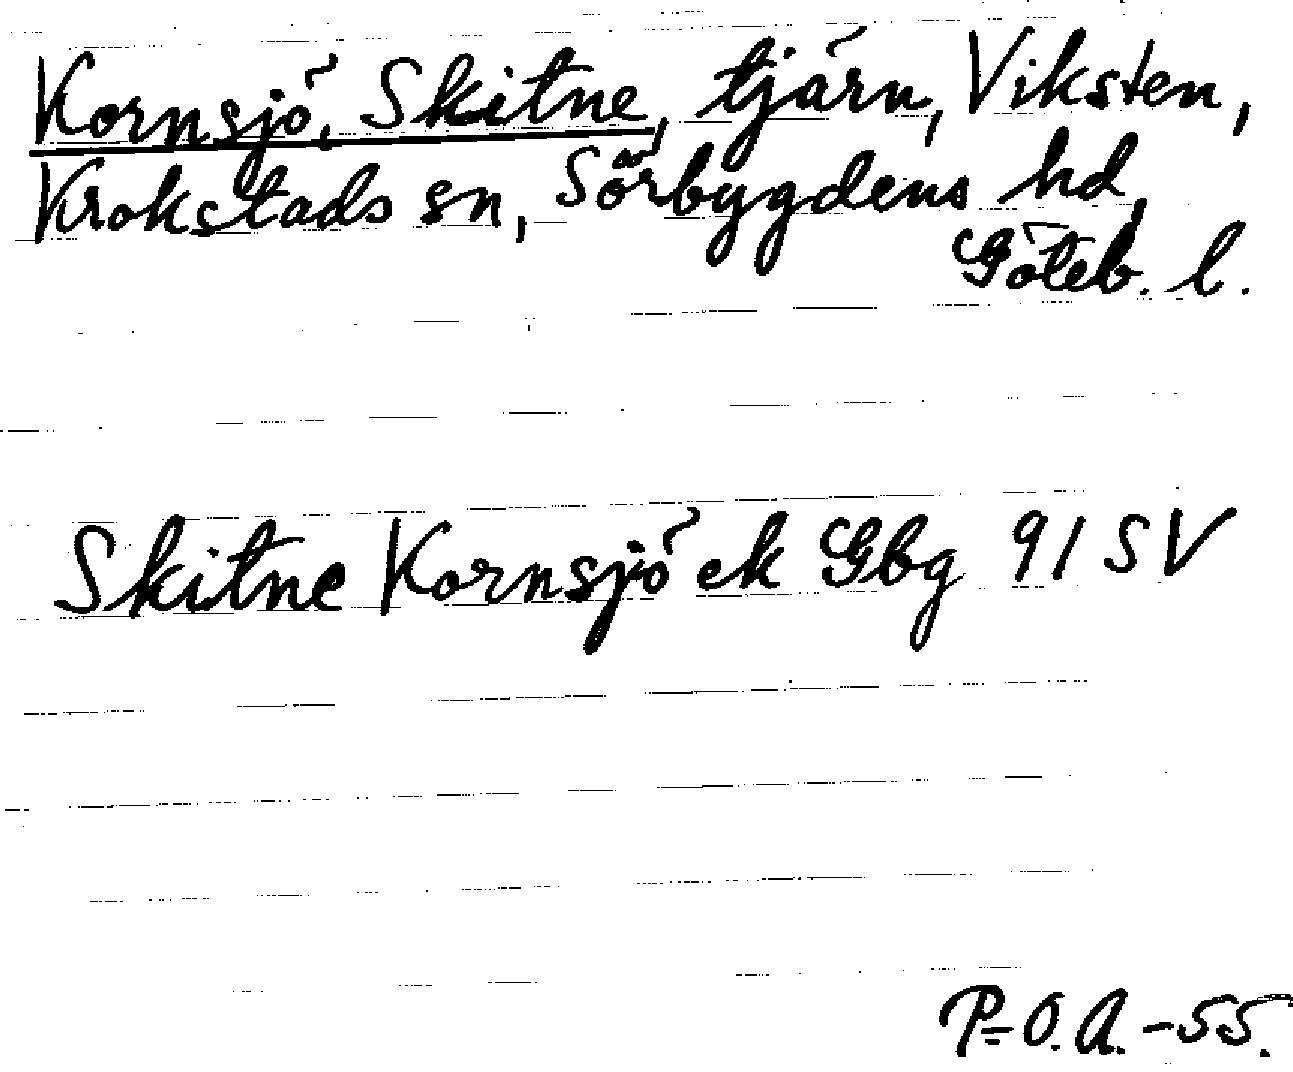 Kornsjö, Skitne, tjärn, Viksten,
Krokstads sn, Sörbygdens hd,
Göteb. l.
Skitne Kornsjö ek Gbg 91 SV
P-O.A.-55.